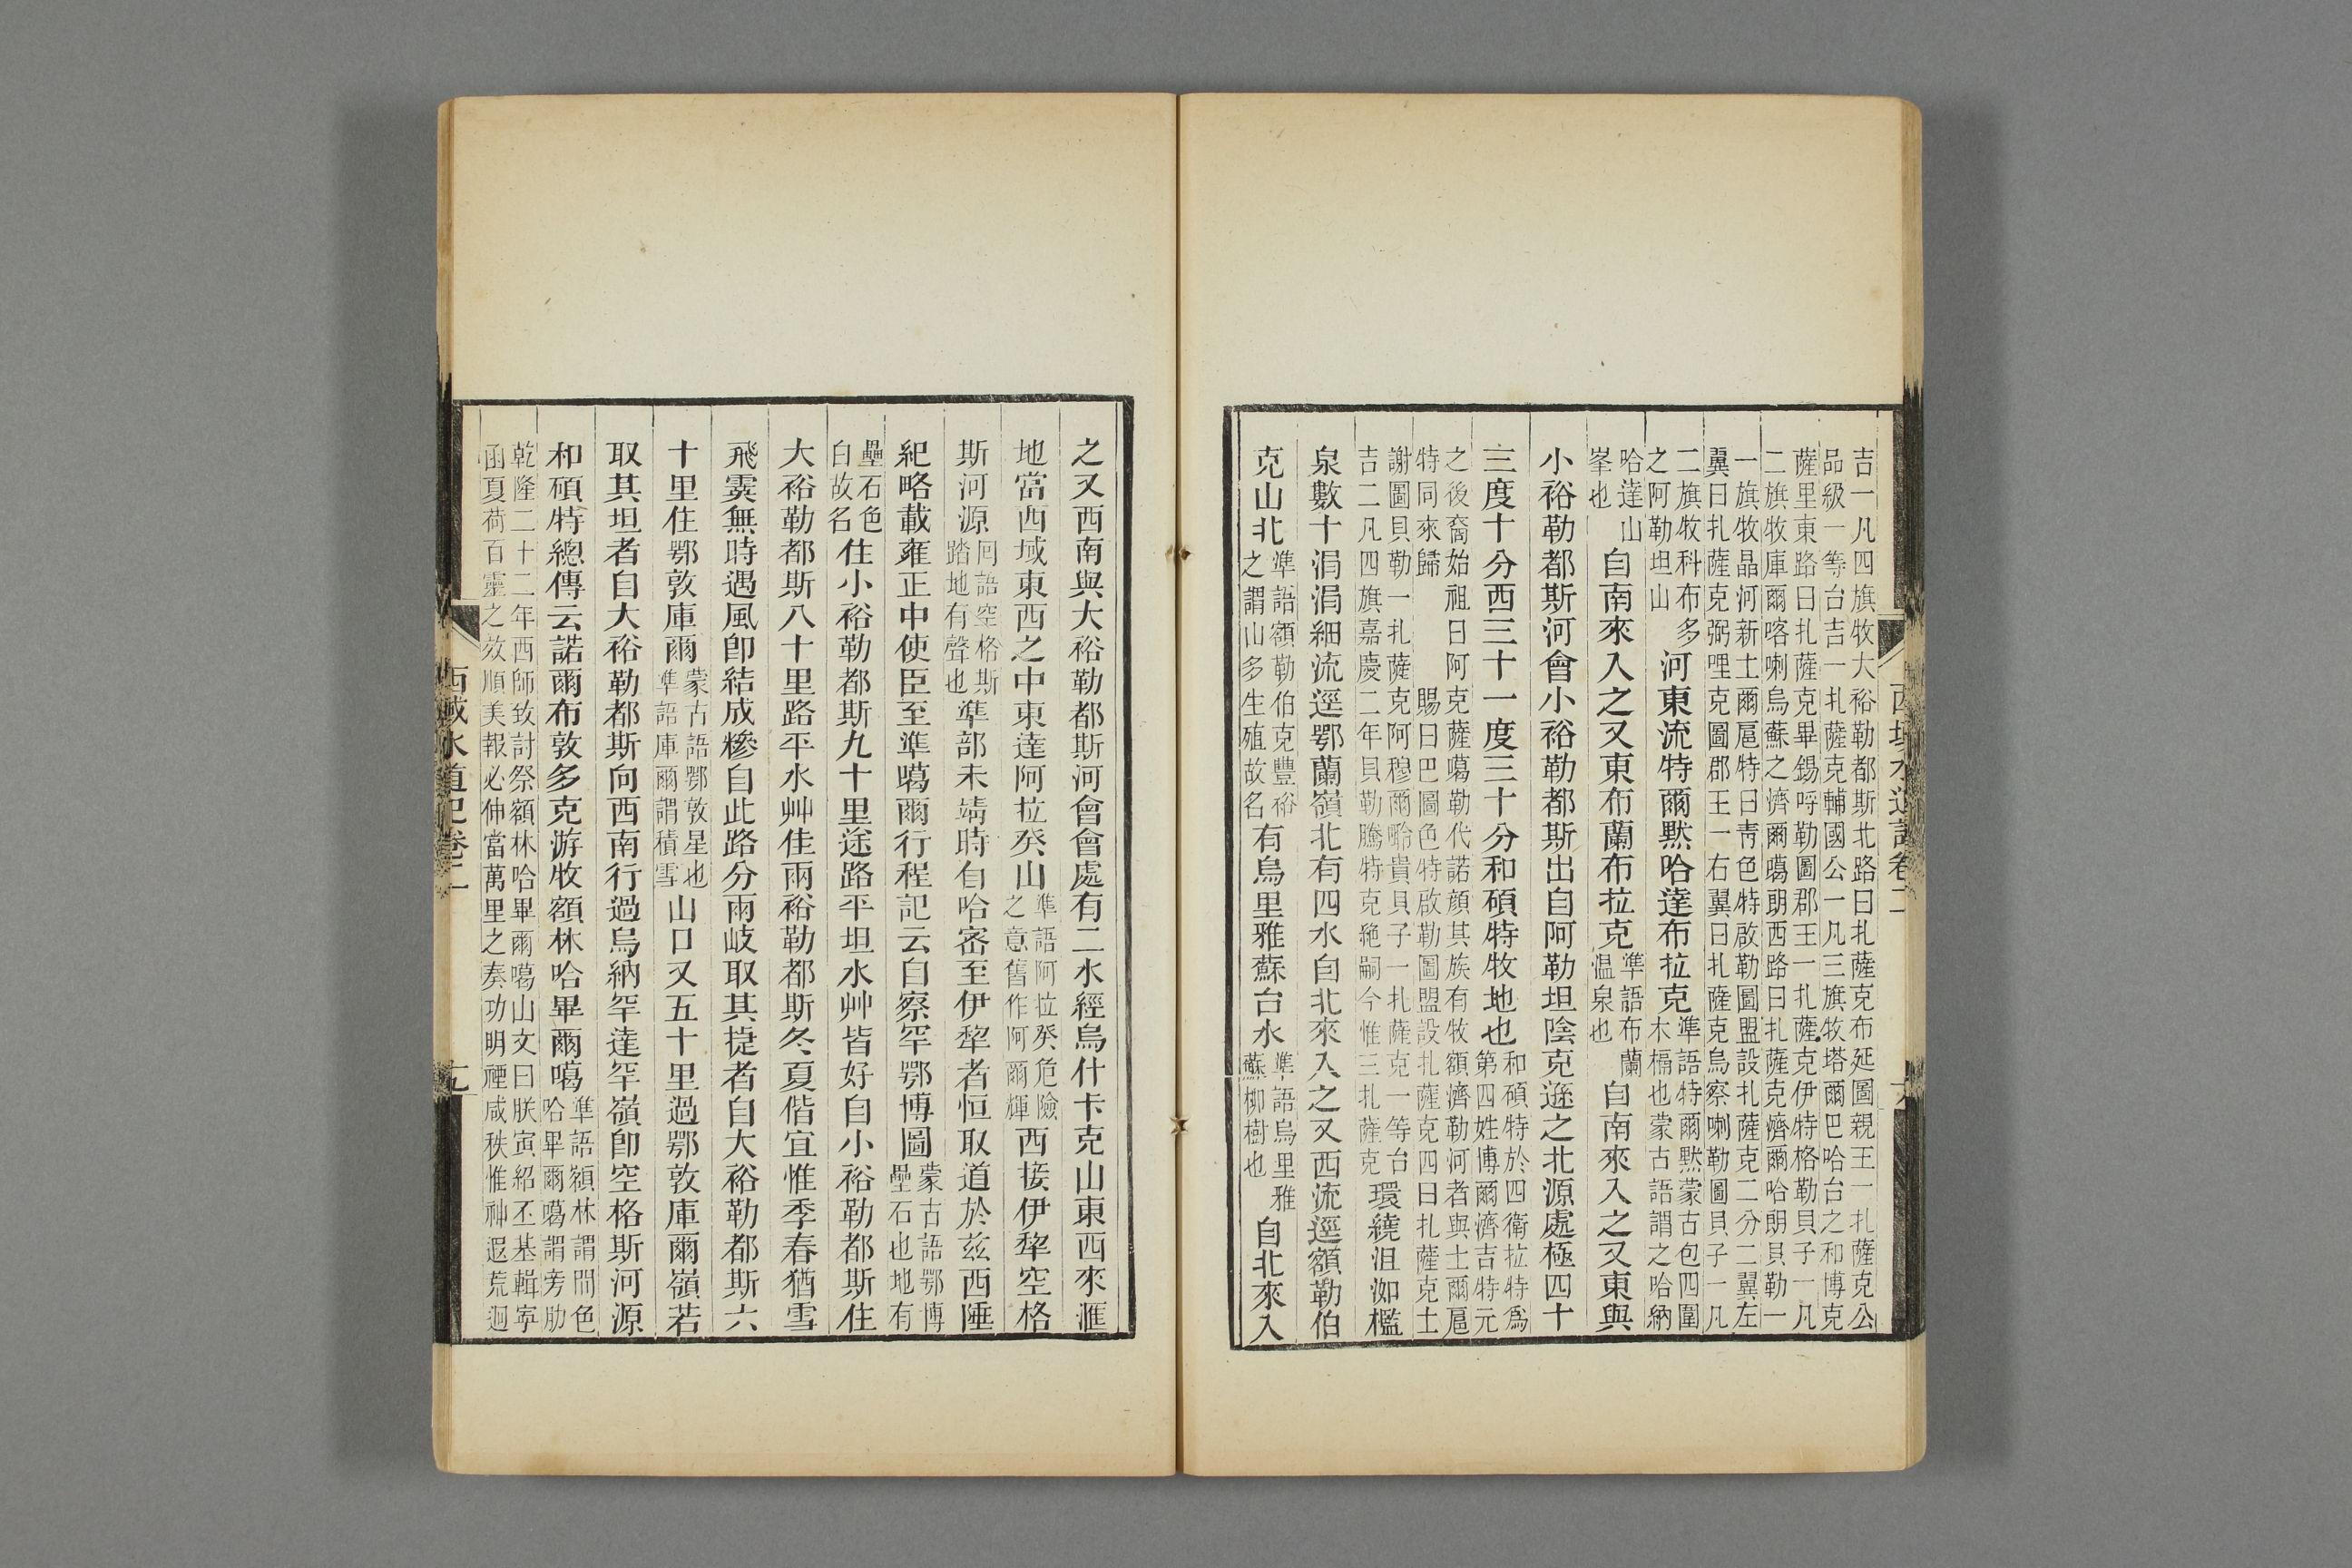 西域水道記卷二
吉一凡四旗牧大裕勒都斯北路曰扎薩克布延圖親王一扎薩克公
品級一等台吉一扎薩克輔國公一凡三旗牧塔爾巴哈台之和博克
薩里東路曰扎薩克畢錫哷勒圖郡王一扎薩克伊特格勒貝子一凡
二旗牧庫爾喀喇烏蘇之濟爾噶朗西路曰扎薩克濟爾哈朗貝勒一
一旗牧晶河新土爾扈特曰靑色特啟勒圖盟設扎薩克二分二翼左
翼曰扎薩克弼哩克圖郡王一右翼曰扎薩克烏察喇勒圖貝子一凡
二旗牧科布多
之阿勒坦山
河東流特爾默哈達布拉克
準語特爾默蒙古包四圍
木槅也蒙古語謂之哈納
哈達山
峯也
自南來入之又東布蘭布拉克
準語布蘭
温泉也
自南來入之又東與
小裕勒都斯河會小裕勒都斯出自阿勒坦陰克遜之北源處極四十
三度十分西三十一度三十分和碩特牧地也
和碩特於四衛拉特爲
第四姓博爾濟吉特元
之後裔始祖曰阿克薩噶勒代諾顔其族有牧額濟勒河者與土爾扈
特同來歸 賜曰巴圖色特啟勒圖盟設扎薩克四曰扎薩克土
謝圖貝勒一扎薩克阿穆爾㖫貴貝子一扎薩克一等台
吉二凡四旗嘉慶二年貝勒騰特克絶嗣今惟三扎薩克
環繞沮洳檻
泉數十涓涓細流逕鄂蘭嶺北有四水自北來入之又西流逕額勒伯
克山北
準語額勒伯克豐裕
之謂山多生殖故名
有烏里雅蘇台水
準語烏里雅
蘇柳樹也
自北來入
之又西南與大裕勒都斯河會會處有二水經烏什卡克山東西來滙
地當西域東西之中東達阿拉癸山
準語阿拉癸危險
之意舊作阿爾輝
西接伊犂空格
斯河源
囘語空格斯
踏地有聲也
準部未靖時自哈密至伊犂者恒取道於兹西陲
紀略載雍正中使臣至準噶爾行程記云自察罕鄂博圖
蒙古語鄂博
壘石也地有
壘石色
白故名
住小裕勒都斯九十里途路平坦水艸皆好自小裕勒都斯住
大裕勒都斯八十里路平水艸佳兩裕勒都斯冬夏偕宜惟季春猶雪
飛霙無時遇風卽結成糝自此路分兩岐取其捷者自大裕勒都斯六
十里住鄂敦庫爾
蒙古語鄂敦星也
準語庫爾謂積雪
山口又五十里過鄂敦庫爾嶺若
取其坦者自大裕勒都斯向西南行過烏納罕達罕嶺卽空格斯河源
和碩特總傳云諾爾布敦多克游牧額林哈畢爾噶
準語額林謂間色
哈畢爾噶謂旁肋
乾隆二十二年西師致討祭額林哈畢爾噶山文曰朕寅紹丕基輯寧
函夏荷百靈之效順美報必伸當萬里之奏功明禋咸秩惟神遐荒迴
西域水道記卷二
十九